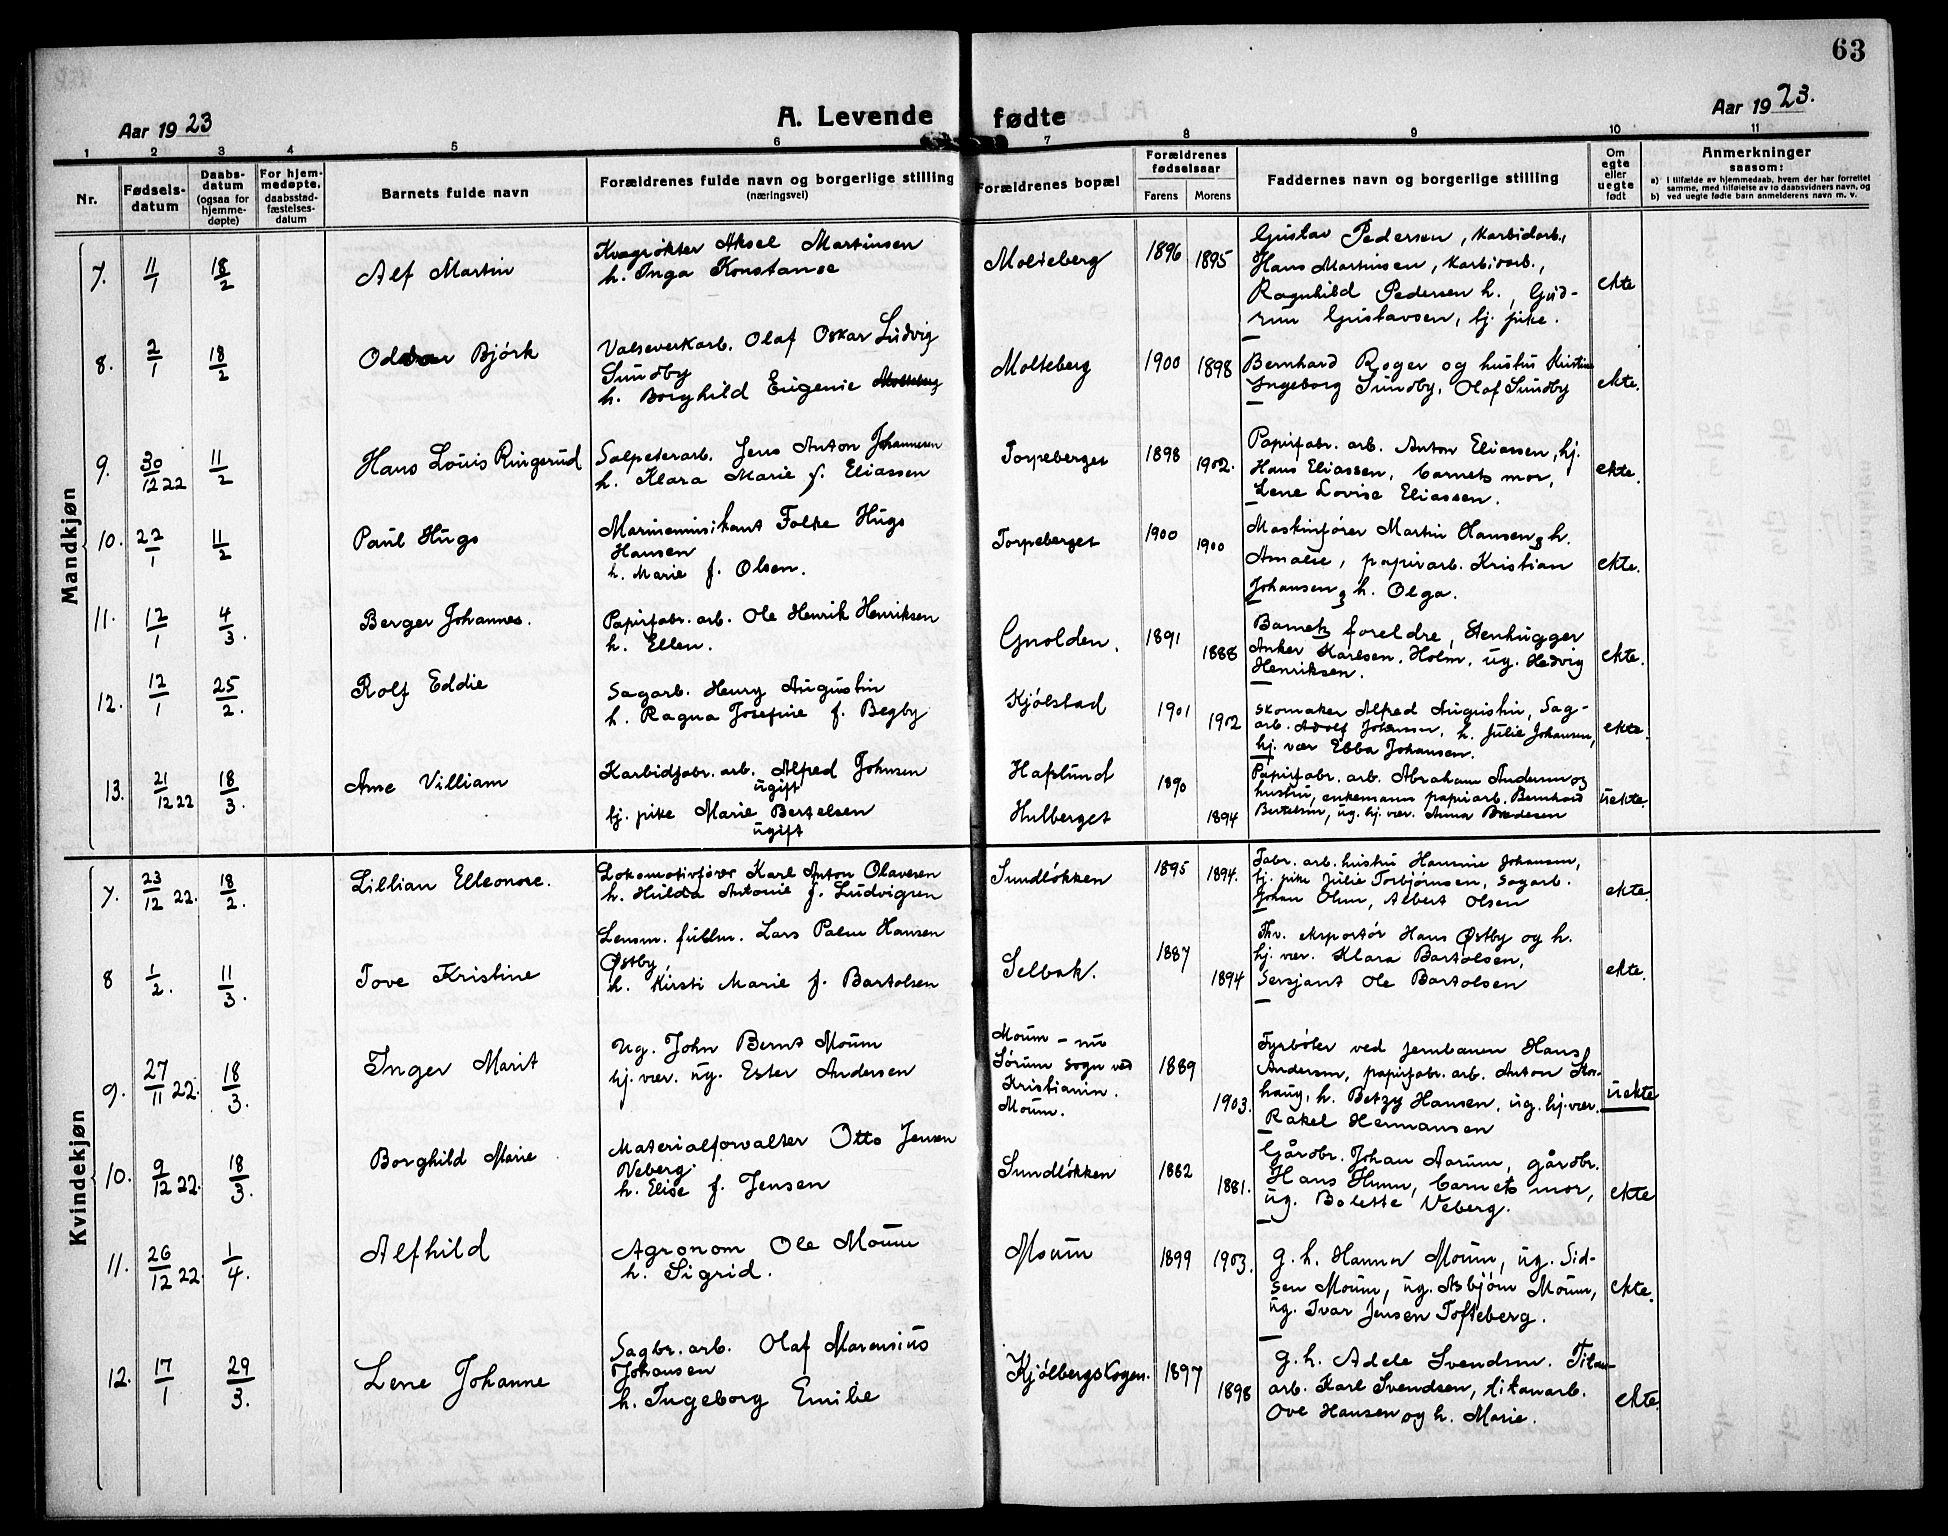 63
Aar 1923
A. Levende fødte
Aar 1923.
1 2 3 4 5 6 7 8 9 10 11
Nr.
Fødsels-
datum
Daabs-
datum
(ogsaa for
hjemme-
døpte)
For hjem-
medøpte,
daabsstad-
fæstelses-
datum
Barnets fulde navn
Forældrenes fulde navn og borgerlige stilling
(næringsvei)
Forældrenes bopæl
Forældrenes
fødselsaar
Farens Morens
Faddernes navn og borgerlige stilling
Om
egte
eller
uegte
født
Anmerkninger
saasom:
a) i tilfælde av hjemmedaab, hvem der har forrettet
samme, med tilføielse av to daabsvidners navn, og
b) ved uegte fødte barn anmelderens navn m. v.
Mandkjøn
7. 11/1 18/2 Alf Martin
Kvægrøkter Aksel Martinsen
h. Inga Konstanse
Molteberg 1896 1895
Gustav Pedersen, karbidarb.,
Hans Martinsen, karbidarb.,
Ragnhild Pedersen h., Gud-
run Gustavsen, hj. pike.
ekte
8. 2/1 18/2 Oddvar Bjørk
Valseverkarb. Olaf Oskar Ludvig
Sundby
h. Borghild Eugenie Molteberg
Molteberg 1900 1898
Bernhard Roger og hustru Kristine
Ingeborg Sundby, Olaf Sundby
ekte.
9. 30/12 22 11/2 Hans Louis Ringerud
Salpeterarb. Jens Anton Johannesen
h. Klara Marie f. Eliassen
Torpeberget 1898 1902.
Papirfabr. arb. Anton Eliassen, hj.
Hans Eliassen, barnets mor,
Lene Lovise Eliassen.
ekte.
10. 22/1 11/2 Paul Hugo
Marinemusikant Folke Hugo
Hansen
h. Marie f. Olsen.
Torpeberget 1900 1900
Maskinfører Martin Hansen & h.
Amalie, papirarb. Kristian
Johansen & h. Olga.
ekte.
11. 12/1 4/3. Berger Johannes.
Papirfabr. arb. Ole Henrik Henriksen
h. Ellen.
Gnolden. 1891 1888
Barnets foreldre, Stenhugger
Anker Karlsen, Holm, ug. Hedvig
Henriksen.
ekte.
12. 12/1 25/2. Rolf Eddie
Sagarb. Henry Augustin
h. Ragna Josefine f. Begby
Kjølstad 1901 1902
Skomaker Alfred Augustin, Sag-
arb. Adolf Johansen, h. Julie Johansen,
hj. vær Ebba Johansen.
ekte.
13. 21/12 22 18/3. Arne Villiam
Karbidfabr. arb. Alfred Johnsen
ugift
hj. pike Marie Bertelsen
ugift
Hafslund
Hulberget
1890 1894
Papirfabr. arb. Abraham Andersen og
hustru, enkemann papirarb. Bernhard
Bertelsen, ug. hj. vær. Anna Bredesen
uekte.
Kvindekjøn
7. 23/12 22. 18/2. Lillian Elleonore.
Lokomotivfører Karl Anton Olavesen
h. Hulda Antonie f. Ludvigsen
Sundløkken 1895 1894.
Fabr. arb. hustru Hansine Johansen,
hj. pike Julie Torbjørnsen, Sagarb.
Johan Olsen, Albert Olsen
ekte.
8 1/2. 11/3. Tove Kristine
Lensm. fullm. Lars Palm Hansen
Østby,
h. Kirsti Marie f. Bartolsen
Selbak. 1887 1894
Thv. eksportør Hans Østby og h.
hj. vær. Klara Bartolsen,
Sersjant Ole Bartolsen
ekte.
9. 27/11 22. 18/3. Inger Marit
Ug. John Bernt Moum
hj. vær. ug. Ester Andersen
Moum – nu
Sørum sogn ved
Kristiania.
Moum.
1889 1903.
Fyrbøter ved jernbanen Hans
Andersen, papirfabr. arb. Anton Stor-
haug, h. Betzy Hansen, ug. hj. vær.
Rakel Hermansen
uekte
10. 9/12 22. 18/3. Borghild Marie
Materialforvalter Otto Jensen
Veberg.
h. Elise f. Jensen
Sundløkken 1882 1881.
Gårdbr. Johan Aarum, gårdbr.
Hans Hunn, barnets mor,
ug. Bolette Veberg.
ekte
11. 26/12 22. 1/4. Alfhild
Agronom Ole Moum
h. Sigrid.
Moum 1899 1903.
g. h. Hanna Moum, ug. Sid-
sen Moum, ug. Asbjørn Moum,
ug. Ivar Jensen Tofteberg.
ekte.
12. 17/1 29/3. Lene Johanne
Sagbr. arb. Olaf Marensius
Johansen
h. Ingeborg Emilie
Kjølbergskogen. 1897 1898
g. h. Adele Svendsen. Titan-
arb. Karl Svendsen, titanarb.
Ove Hansen og h. Marie.
ekte.